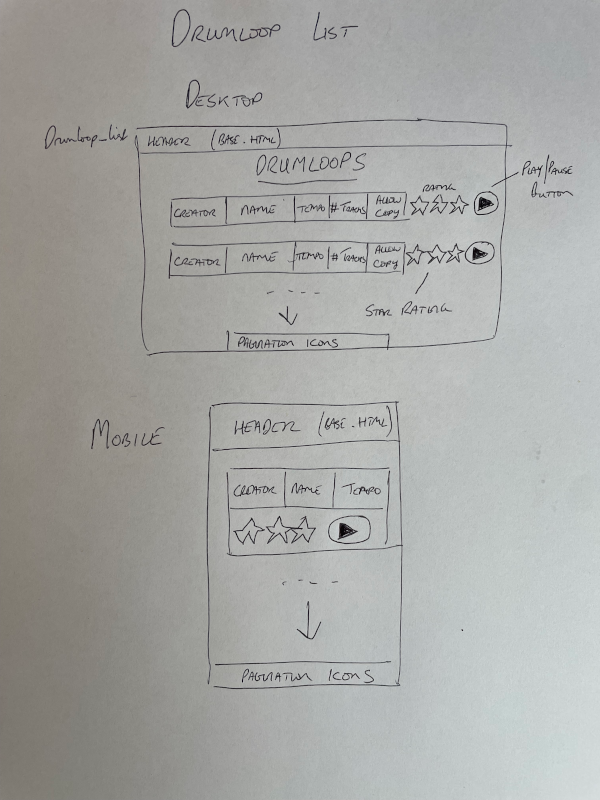 DRUMLOOP LIST
DESKTOP
Drumloop_list
HEADER (BASE.HTML)
DRUMLOOPS
PLAY/PAUSE
BUTTON
RATING
CREATOR NAME TEMPO # TRACKS ALLOW COPY
CREATOR NAME TEMPO # TRACKS ALLOW COPY
STAR RATING
PAGINATION ICONS
MOBILE
HEADER (BASE.HTML)
CREATOR NAME TEMPO
PAGINATION ICONS